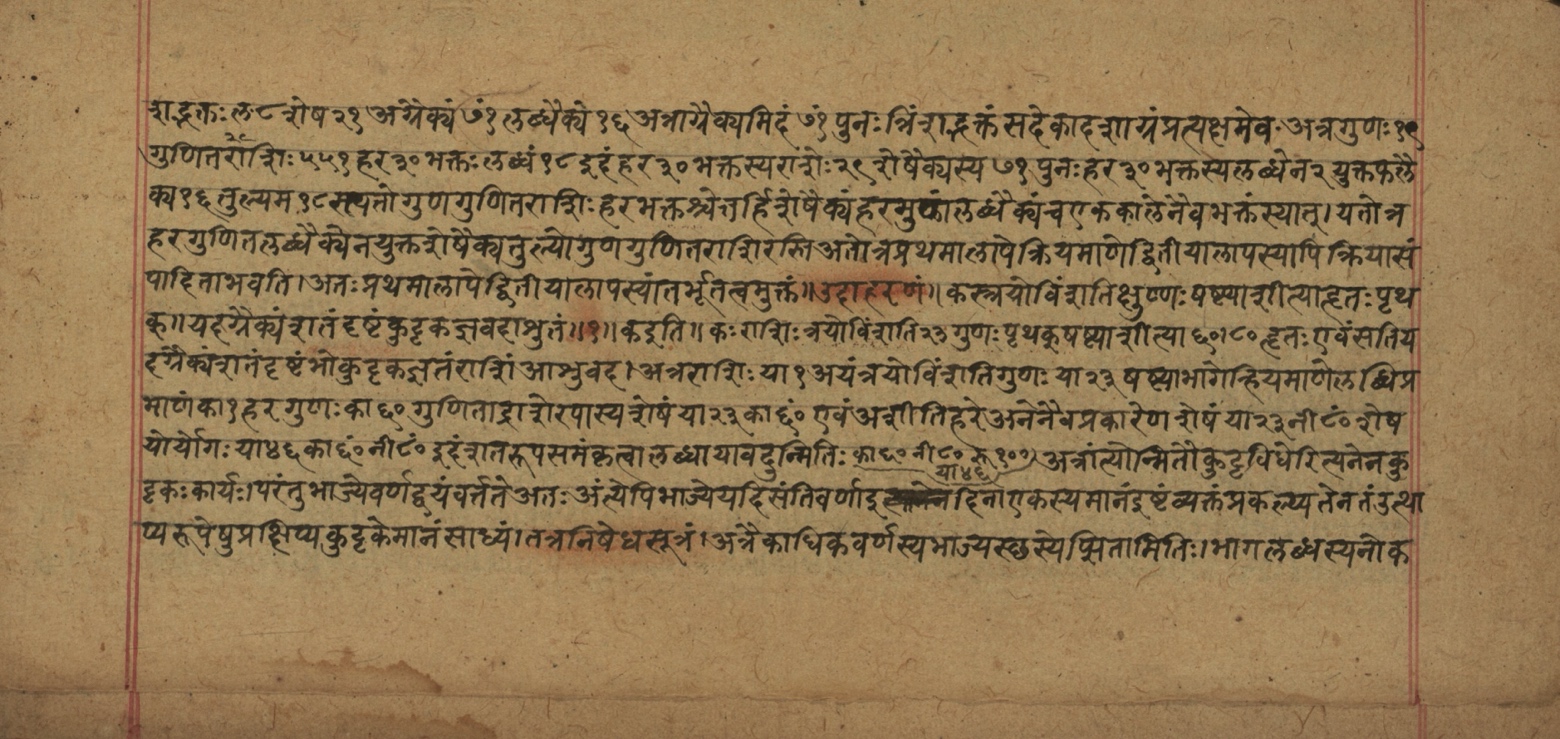 शद्भक्तः ल ८ शेष २१ अग्रैक्यं ७१ लब्ध्यैक्ये १६ अत्राग्रैक्यमिदं ७१ पुनः त्रिंशद्भक्तं सदेकादशाग्रं प्रत्यक्षमेव अत्र गुणः १९
२९
गुणितराशिः ५५१ हर ३० भक्तः लब्धं १८ इदं हर ३० भक्तस्य राशेः २९ शेषैक्यस्य ७१ पुनः हर ३० भक्तस्य लब्धेन २ युक्तफलै
क्य १६ तुल्यम १८ स्त्यतो गुणगुणितराशिः हरभक्तश्चेत्तर्हि शेषैक्यं हरमुष्णं लब्ध्यैक्यं च एककालेनैव भक्तं स्यात्। यतोत्र
हरगुणितलब्ध्यैक्येन युक्तशेषैक्यतुल्यो गुणगुणितराशिरस्ति अतोत्र प्रथमालापे क्रियमाणे द्वितीयालापस्यापि क्रिया सं
पादिता भवति। अतः प्रथमालापे द्वितीयालापस्यांतर्भूतत्वमुक्तं॥ उदाहरणं॥ कस्त्रयोविंशतिक्षुण्णः षष्ट्याशीत्या हृतः पृथ
क्॥ यदग्रैक्यं शतं दृष्टं कुट्टकज्ञ वदाशु तं॥१॥ कइति॥ कः राशिः त्रयोविंशति २३ गुणः पृथक् षष्ट्याशीत्या ६०।८० हृतः एवं सति य
दग्रैक्यं शतं दृष्टं भो कुट्टकज्ञ तं राशिं आशु वद। अत्र राशिः या १ अयं त्रयोविंशतिगुणः या २३ षष्ट्या भागे ह्रियमाणे लब्धिप्र
माणं का १ हरगुणः का ६० गुणिताद्राशेरपास्य शेषं या २३ का ६ं० एवं अशीतिहरे अनेनैव प्रकारेण शेषं या २३ नी ८ं० शेष
योर्योगः या ४६ का ६ं० नी ८ं० इदं शतरूपसमं कृत्वा लब्धा यावदुन्मितिः का ६० नी ८० रू १०० अत्रांत्योन्मितौ कुट्टविधेरित्यनेन कु
या ४६
ट्टकः कार्यः। परंतु भाज्ये वर्णद्वयं वर्त्तते अतः अंत्येपि भाज्ये यदि संति वर्णा इत्यादिना एकस्य मानं इष्टं व्यक्तं प्रकल्प्य तेन तं उत्था
प्य रूपेषु प्रक्षिप्य कुट्टके मानं साध्यं। तत्र निषेधसूत्रं। अत्रैकाधिकवर्णस्य भाज्यस्छस्येप्सिता मितिः। भागलब्धस्य नो क